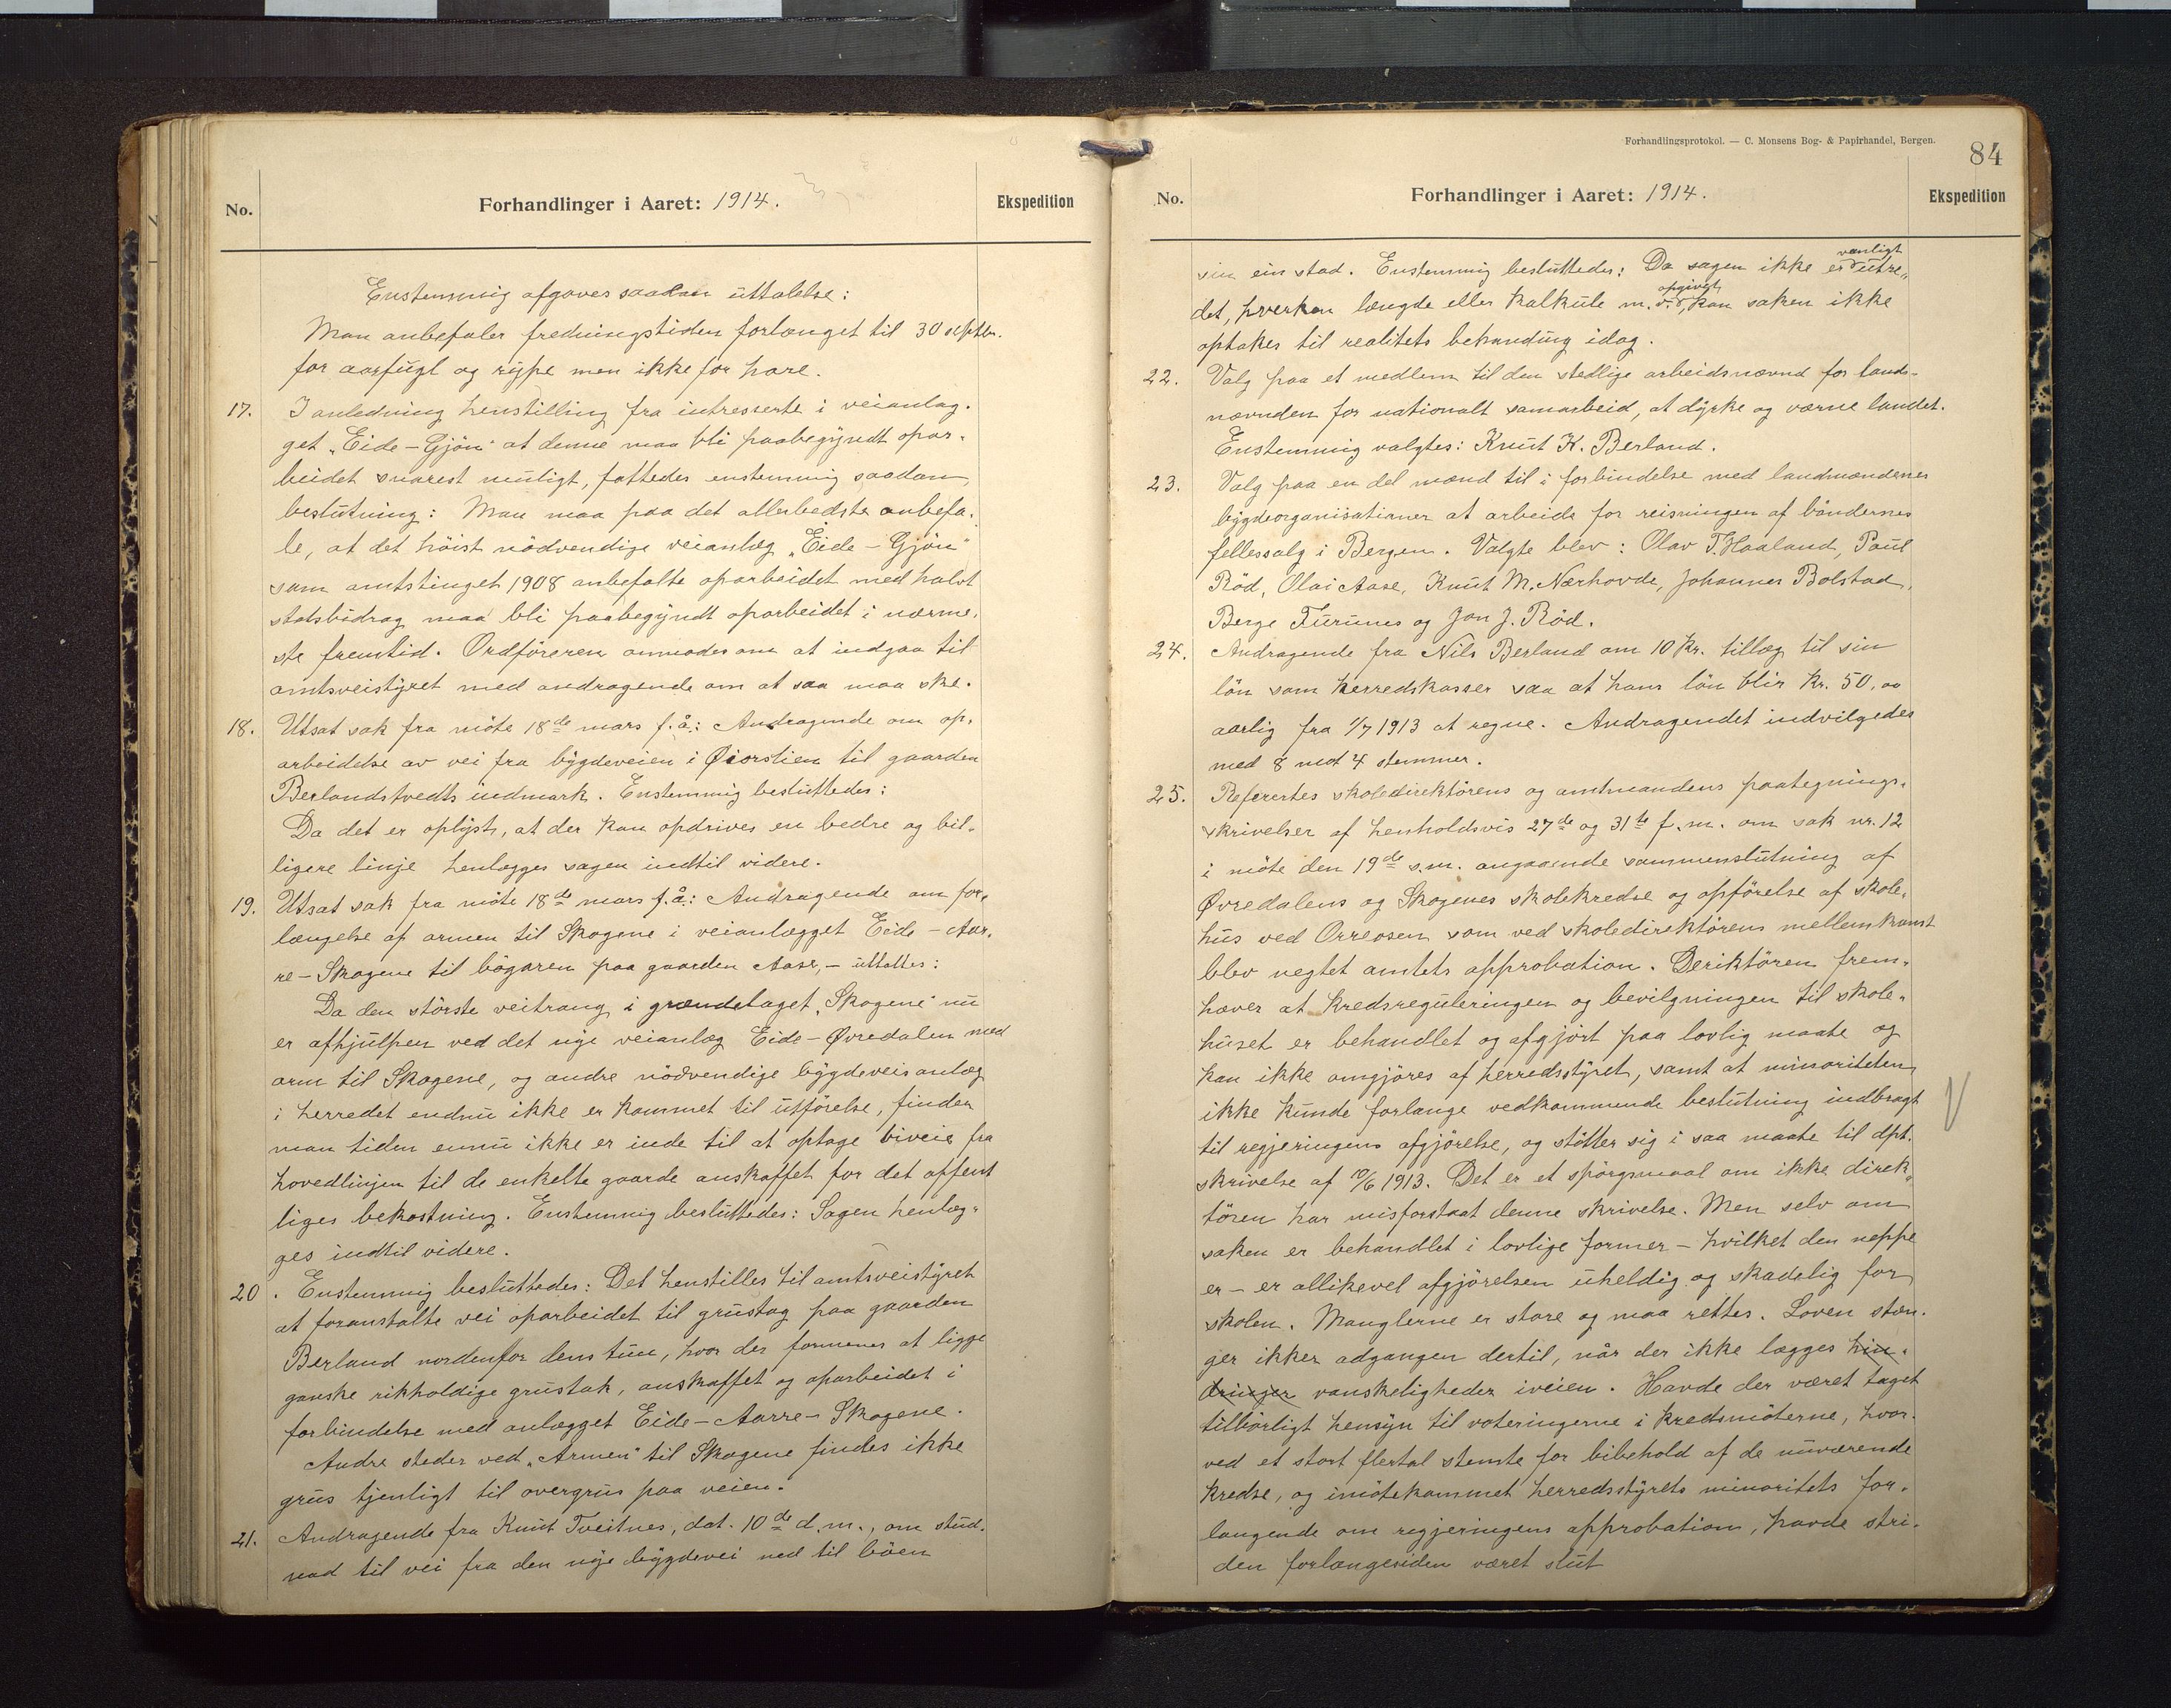 No.
Forhandlinger i Aaret: 1914.
Ekspedition
Enstemmig afgaves saadan uttalelse:
Man anbefaler fredningstiden forlænget til 30 septbr.
for aarfugl og rype men ikke for hare.
17. I anledning henstilling fra intresserte i veianlag-
get „Eide-Gjøn" at denne maa bli paabegyndt opar-
beidet snarest muligt, fattedes enstemmig saadan
beslutning: Man maa paa det allerbedste anbefa-
le, at det høist nødvendige veianlæg „Eide-Gjøn"
som amtstinget 1908 anbefalte oparbeidet med halvt
statsbidrag maa bli paabegyndt oparbeidet i nærme-
ste fremtid. Ordføreren anmodes om at indgaa til
amtsveistyret med andragende om at saa maa ske.
18. Utsat sak fra møte 18de mars f.å.: Andragende om op-
arbeidelse av vei fra bygdeveien i Øiorslien til gaarden
Berlandstvedts indmark. Enstemmig besluttedes:
Da det er oplyst, at der kan opdrives en bedre og bil-
ligere linje henlægges sagen indtil videre.
19. Utsat sak fra møte 18de mars f.å.: Andragende om for-
længelse af armen til Skogene i veianlægget Eide-Aar-
re-Skogene til bøgaren paa gaarden Aase,- uttaltes:
Da den største veitrang i grændelaget „Skogene" nu
er afhjulpen ved det nye veianlæg Eide-Øvredalen med
arm til Skogene, og andre nødvendige bygdeveisanlæg
i herredet endnu ikke er kommet til utførelse, finder
man tiden ennu ikke er inde til at optage biveie fra
hovedlinjen til de enkelte gaarde anskaffet for det offent
liges bekostning. Enstemmig besluttedes: Sagen henlæg-
ges indtil videre.
20. Enstemmig besluttedes: Det henstilles til amtsveistyret
at foranstalte vei oparbeidet til grustag paa gaarden
Berland nordenfor dens tun, hvor der formenes at ligge
ganske rikholdige grustak, anskaffet og oparbeidet i
forbindelse med anlægget Eide-Aarre-Skogene.
Andre steder ved „Armen" til Skogene findes ikke
grus tjenligt til overgrus paa veien.
21. Andragende fra Knut Tveitnes, dat. 10de d.m., om stud-
nad til vei fra den nye bygdevei ned til bøen
Forhandlingsprotokol. — C. Monsens Bog- & Papirhandel, Bergen.
84
No.
Forhandlinger i Aaret: 1914.
Ekspedition
sin ein stad. Enstemmig besluttedes: Da sagen ikke er vanligt utre-
det, hverken længde eller kalkule m.v. opgivet, kan saken ikke
optakes til realitets behandling idag.
22. Valg paa et medlem til den stedlige arbeidsnævnd for lands-
nævnden for nationalt samarbeid, at dyrke og værne landet.
Enstemmig valgtes: Knut K. Berland.
23. Valg paa en del mænd til i forbindelse med landmændenes
bygdeorganisationer at arbeide for reisningen af bøndernes
fellessalg i Bergen. Valgte blev: Olav T. Haaland, Paul
Rød, Olai Aase, Knut M. Nærhovde, Johannes Bolstad,
Berge Furunes og Jon J. Rød.
24. Andragende fra Nils Berland om 10 kr. tillæg til sin
løn som herredskasser saa at hans løn blir kr. 50,00
aarlig fra 1/7 1913 at regne. Andragendet indvilgedes
med 8 mot 4 stemmer.
25. Referertes skoledirektørens og amtmandens paategnings-
skrivelser af henholdsvis 27de og 31te f.m. om sak nr. 12
i møte den 19de s.m. angaaende sammenslutning af
Øvredalens og Skogenes skolekredse og opførelse af skole-
hus ved Orreosen som ved skoledirektørens mellemkomst
blev negtet amtets approbation. Deriktøren frem-
hæver at kredsreguleringen og bevilgningen til skole-
huset er behandlet og afgjort paa lovlig maate og
kan ikke omgjøres af herredsstyret, samt at minoriteten
ikke kunde forlange vedkommende beslutning indbragt
til regjeringens afgjørelse, og støtter sig i saa maate til dpt.
skrivelse af 10/6 1913. Det er et spørgsmaal om ikke direk-
tøren har misforstaat denne skrivelse. Men selv om
saken er behandlet i lovlige former - hvilket den neppe
er - er allikevel afgjørelsen uheldig og skadelig for
skolen. Manglerne er store og maa rettes. Loven stæn-
ger ikker adgangen dertil, når der ikke lægges hin-
dringer vanskeligheder iveien. Havde der været taget
tilbørligt hensyn til voteringerne i kredsmøterne, hvor-
ved et stort flertal stemte for bibehold af de nuværende
kredse, og imøtekommet herredsstyrets minoritets for-
langende om regjeringens approbation, havde stri-
den forlængesiden været slut